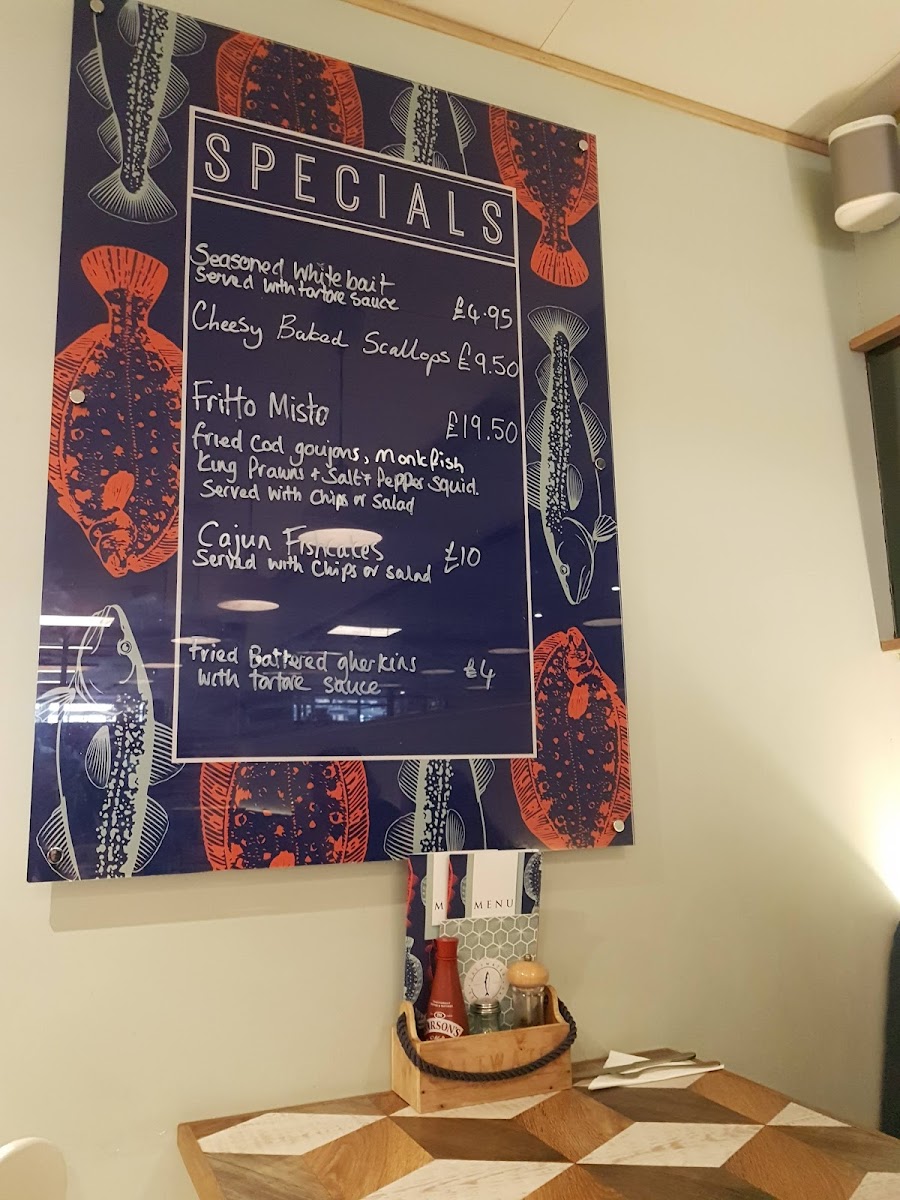 SPECIALS
Seasoned Whitebait
Served with tartare sauce £4.95
Cheesy Baked Scallops £9.50
Fritto Misto £19.50
fried Cod goujons, Monkfish
King Prawns + Salt + Pepper Squid.
Served with Chips or Salad
Cajun Fishcakes £10
Served with Chips or salad
Fried Battered gherkins £4
with tartare sauce
M
MENU
ARSON'S